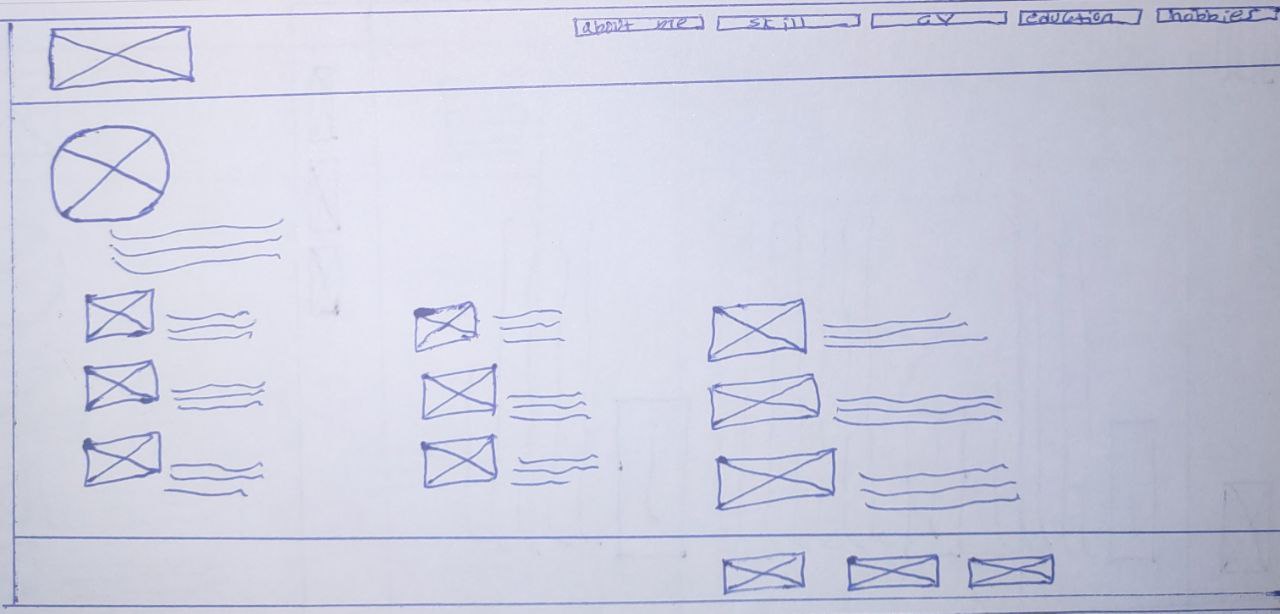 about me skill CV education hobbies